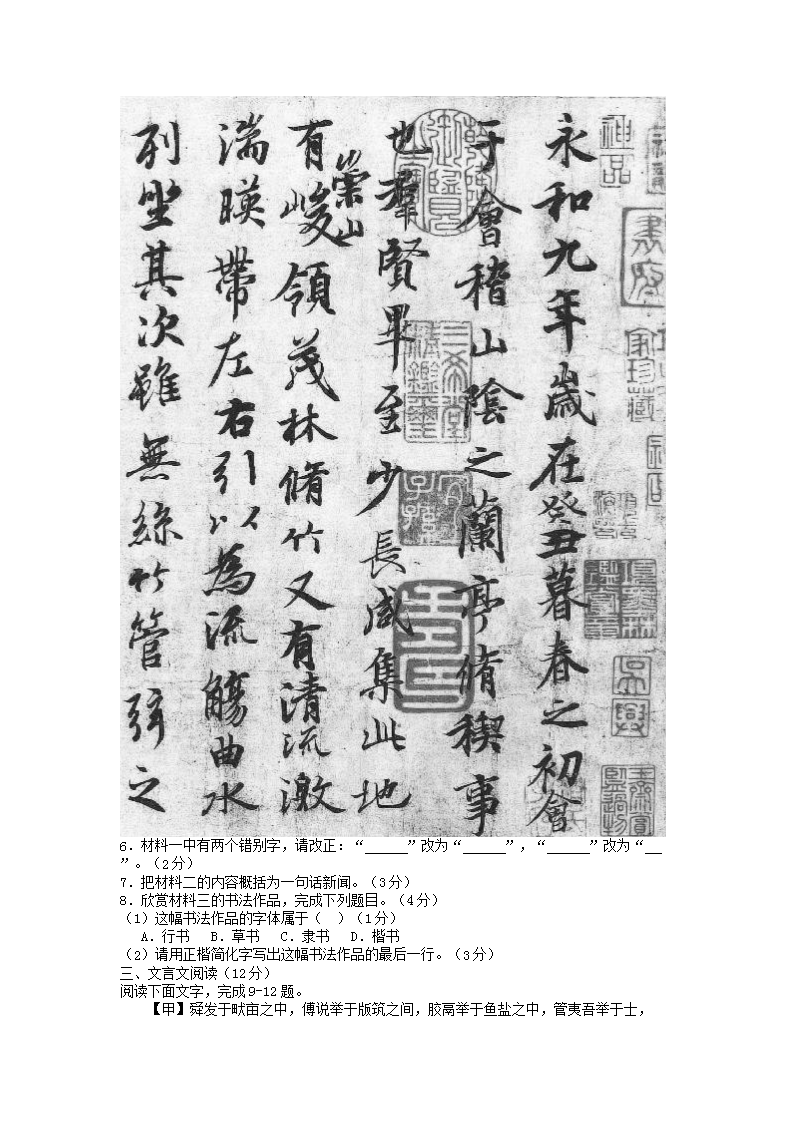 永和九年歲在癸丑暮春之初會
于會稽山陰之蘭亭脩稧事
也羣賢畢至少長咸集此地
有崇山峻領茂林脩竹又有清流激
湍暎帶左右引以為流觴曲水
列坐其次雖無絲竹管弦之
6．材料一中有两个错别字，请改正：“_____”改为“_____”，“_____”改为“__
”。(2分)
7．把材料二的内容概括为一句话新闻。(3分)
8．欣赏材料三的书法作品，完成下列题目。(4分)
(1)这幅书法作品的字体属于（ ）(1分)
A．行书 B．草书 C．隶书 D．楷书
(2)请用正楷简化字写出这幅书法作品的最后一行。(3分)
三、文言文阅读(12分)
阅读下面文字，完成9-12题。
【甲】舜发于畎亩之中，傅说举于版筑之间，胶鬲举于鱼盐之中，管夷吾举于士，